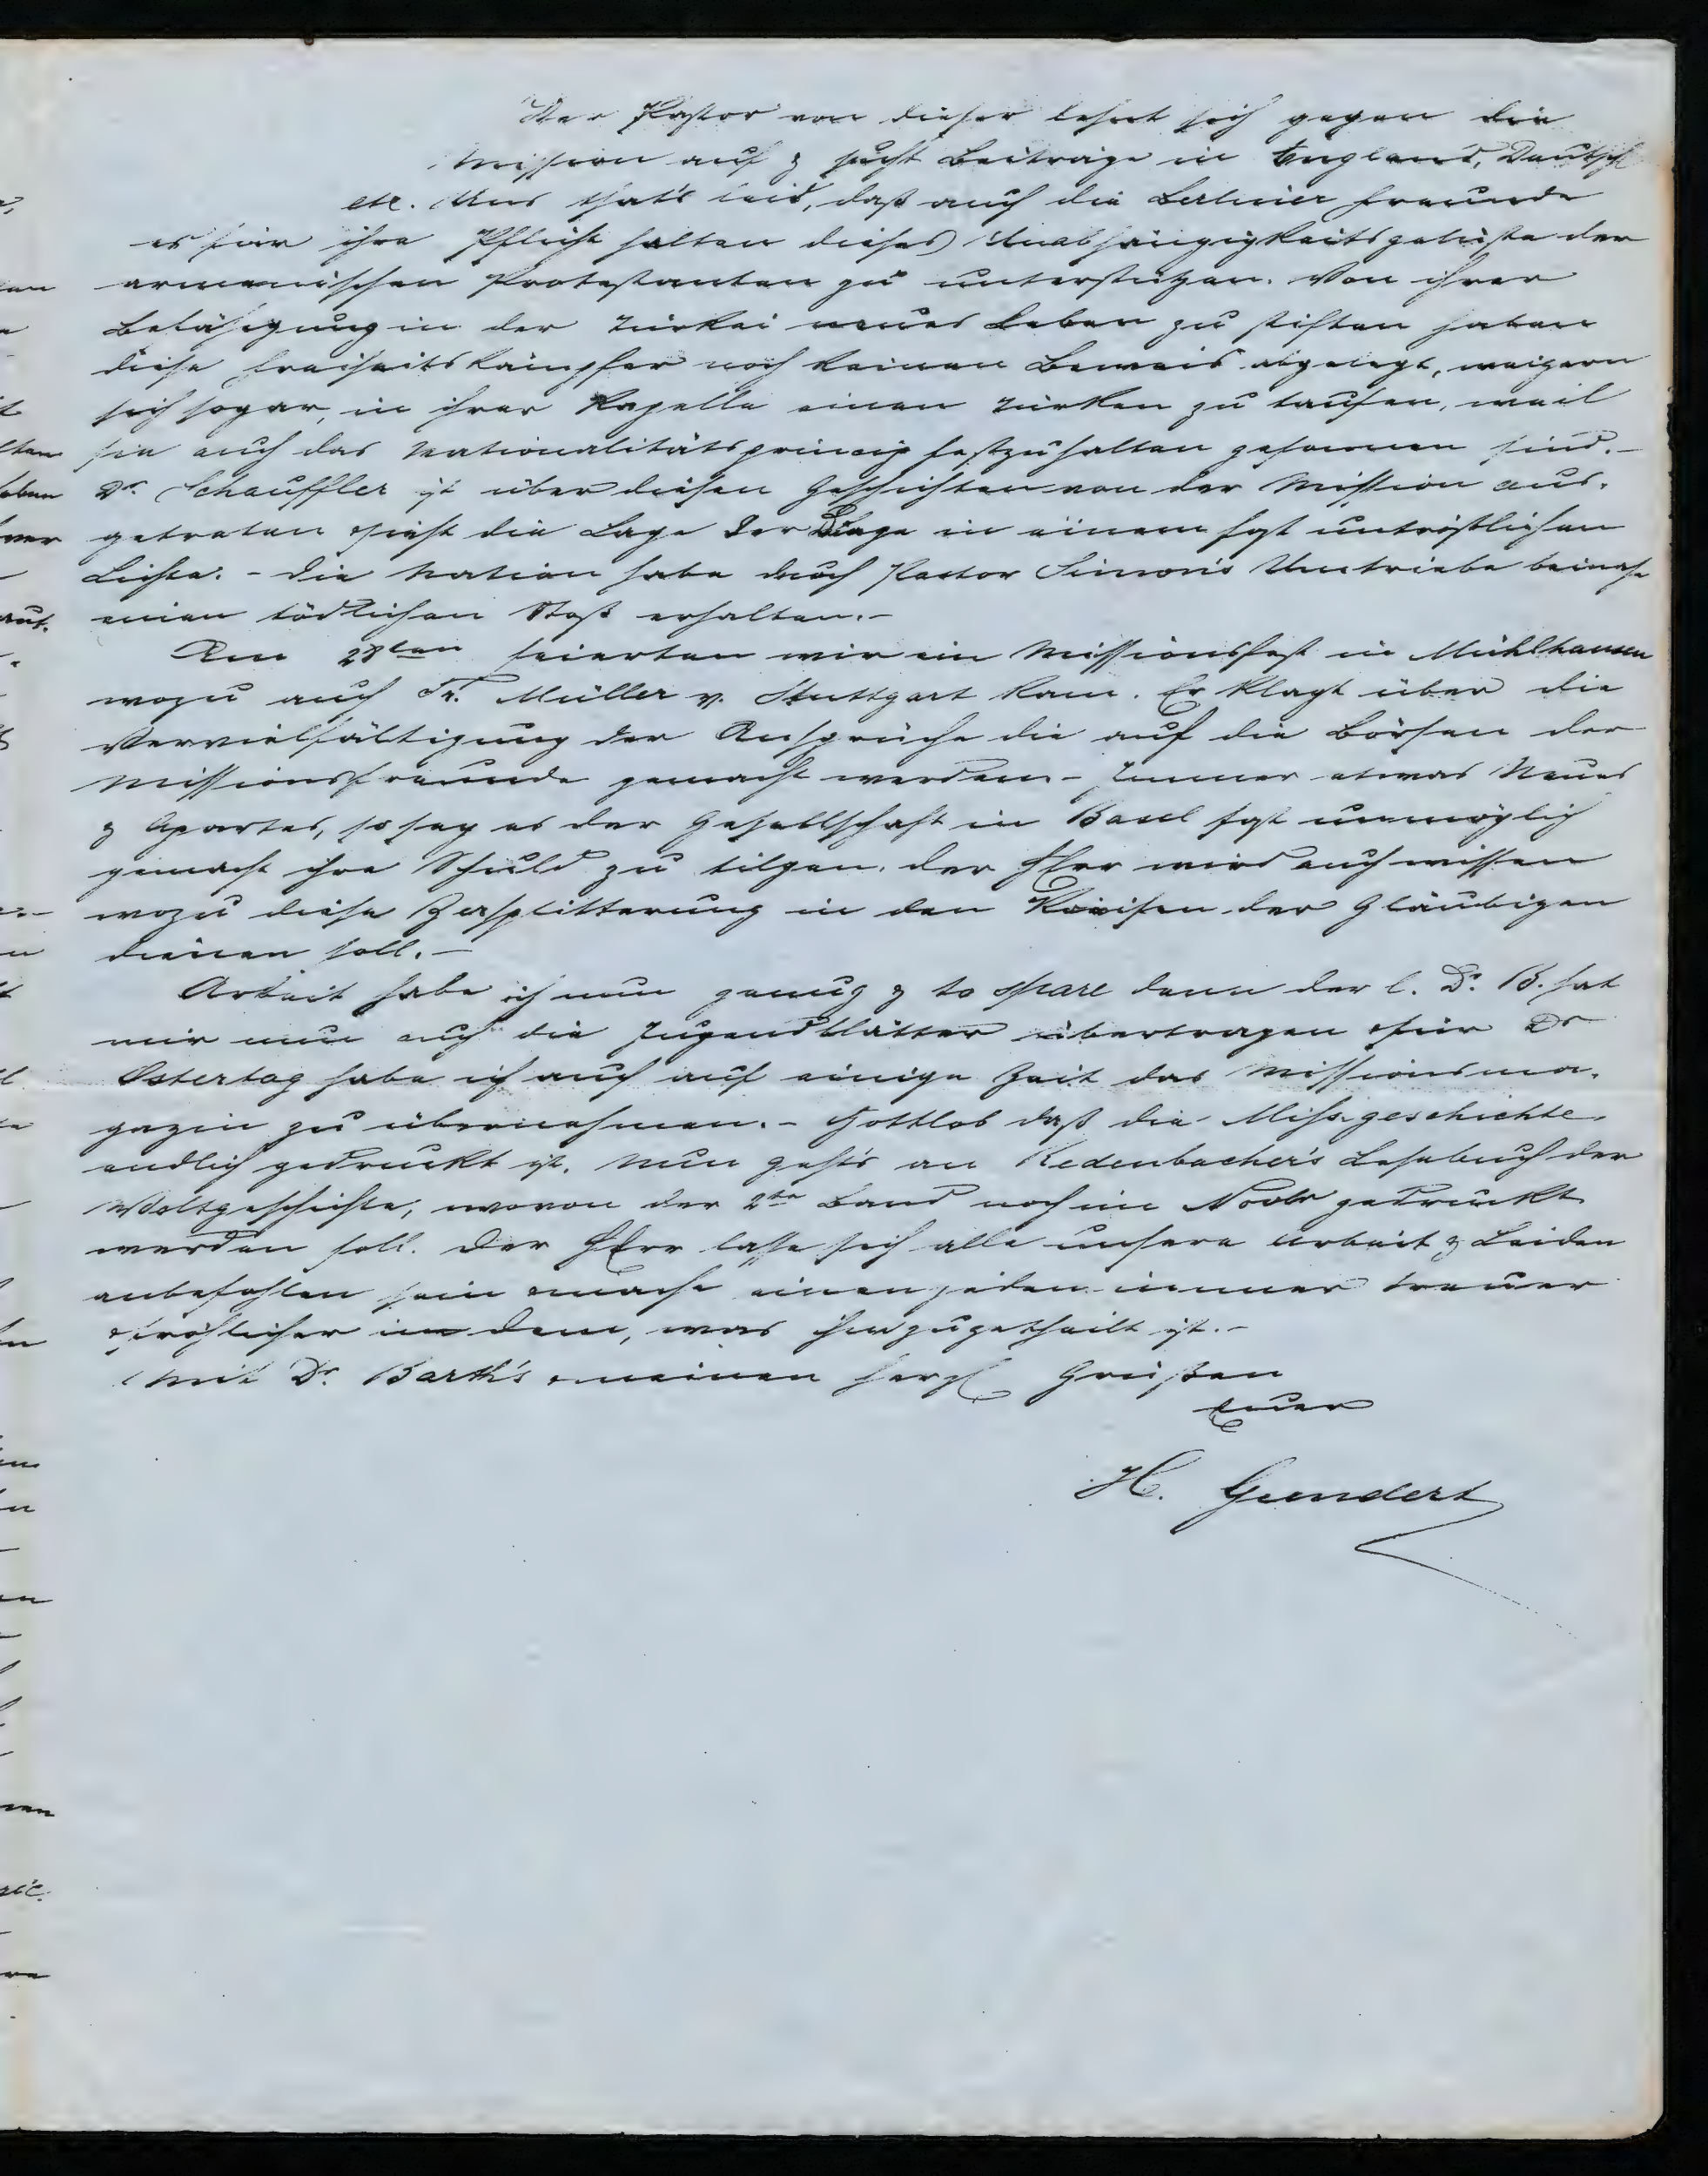 Der Pastor von dieser lehnt sich gegen die
Mission auf & sucht Beiträge in England, Deutschl
etc. Uns thut's leid, daß auch die Berliner Freunde
es für ihre Pflicht halten dieses Unabhängigkeitsgelüste der
armenischen Protestanten zu unterstützen. Von ihrer
Befähigung in der Türkei neues Leben zu stiften haben
diese Freiheitskämpfer noch keinen Beweis abgelegt, weigern
sich sogar, in ihrer Kapelle einen Türken zu taufen, weil
sie auch das Nationalitätsprincip festzuhalten gesonnen sind. -
Dr. Schauffler ist über diesen Geschichten von der Mission aus-
getreten & sieht die Lage der Dinge in einem fast untröstlichen
Lichte. - die Nation habe durch Pastor Simon's Umtriebe beinahe
einen tödlichen Stoß erhalten. -
Am 28ten feierten wir ein Missionsfest in Mühlhausen
wozu auch Fr. Müller v. Stuttgart kam. Er klagt über die
Vervielfältigung der Ansprüche die auf die Börsen der
Missionsfreunde gemacht werden - Immer etwas Neues
& Apartes, so sey es der Gesellschaft in Basel fast unmöglich
gemacht ihre Schuld zu tilgen. der HErr wird auch wissen
wozu diese Zersplitterung in den Kreisen der Gläubigen
dienen soll. -
Arbeit habe ich nun genug & to spare denn der l. Dr. B. hat
mir nun auch die Jugendblätter übertragen & für Dr
Ostertag habe ich auch auf einige Zeit das Missionsma-
gazin zu übernehmen. - Gottlob daß die Miss.geschichte
endlich gedruckt ist. Nun geht's an Redenbacher's Lesebuch der
Weltgeschichte, wovon der 2te Band noch im Novbr gedruckt
werden soll. Der HErr lasse sich alle unsere Arbeit & Leiden
anbefohlen sein & mache einen jeden immer treuer
& fröhlicher in dem, was ihm zugetheilt ist. -
Mit Dr. Barth's & meinen herzl Grüßen
Euer
H. Gundert